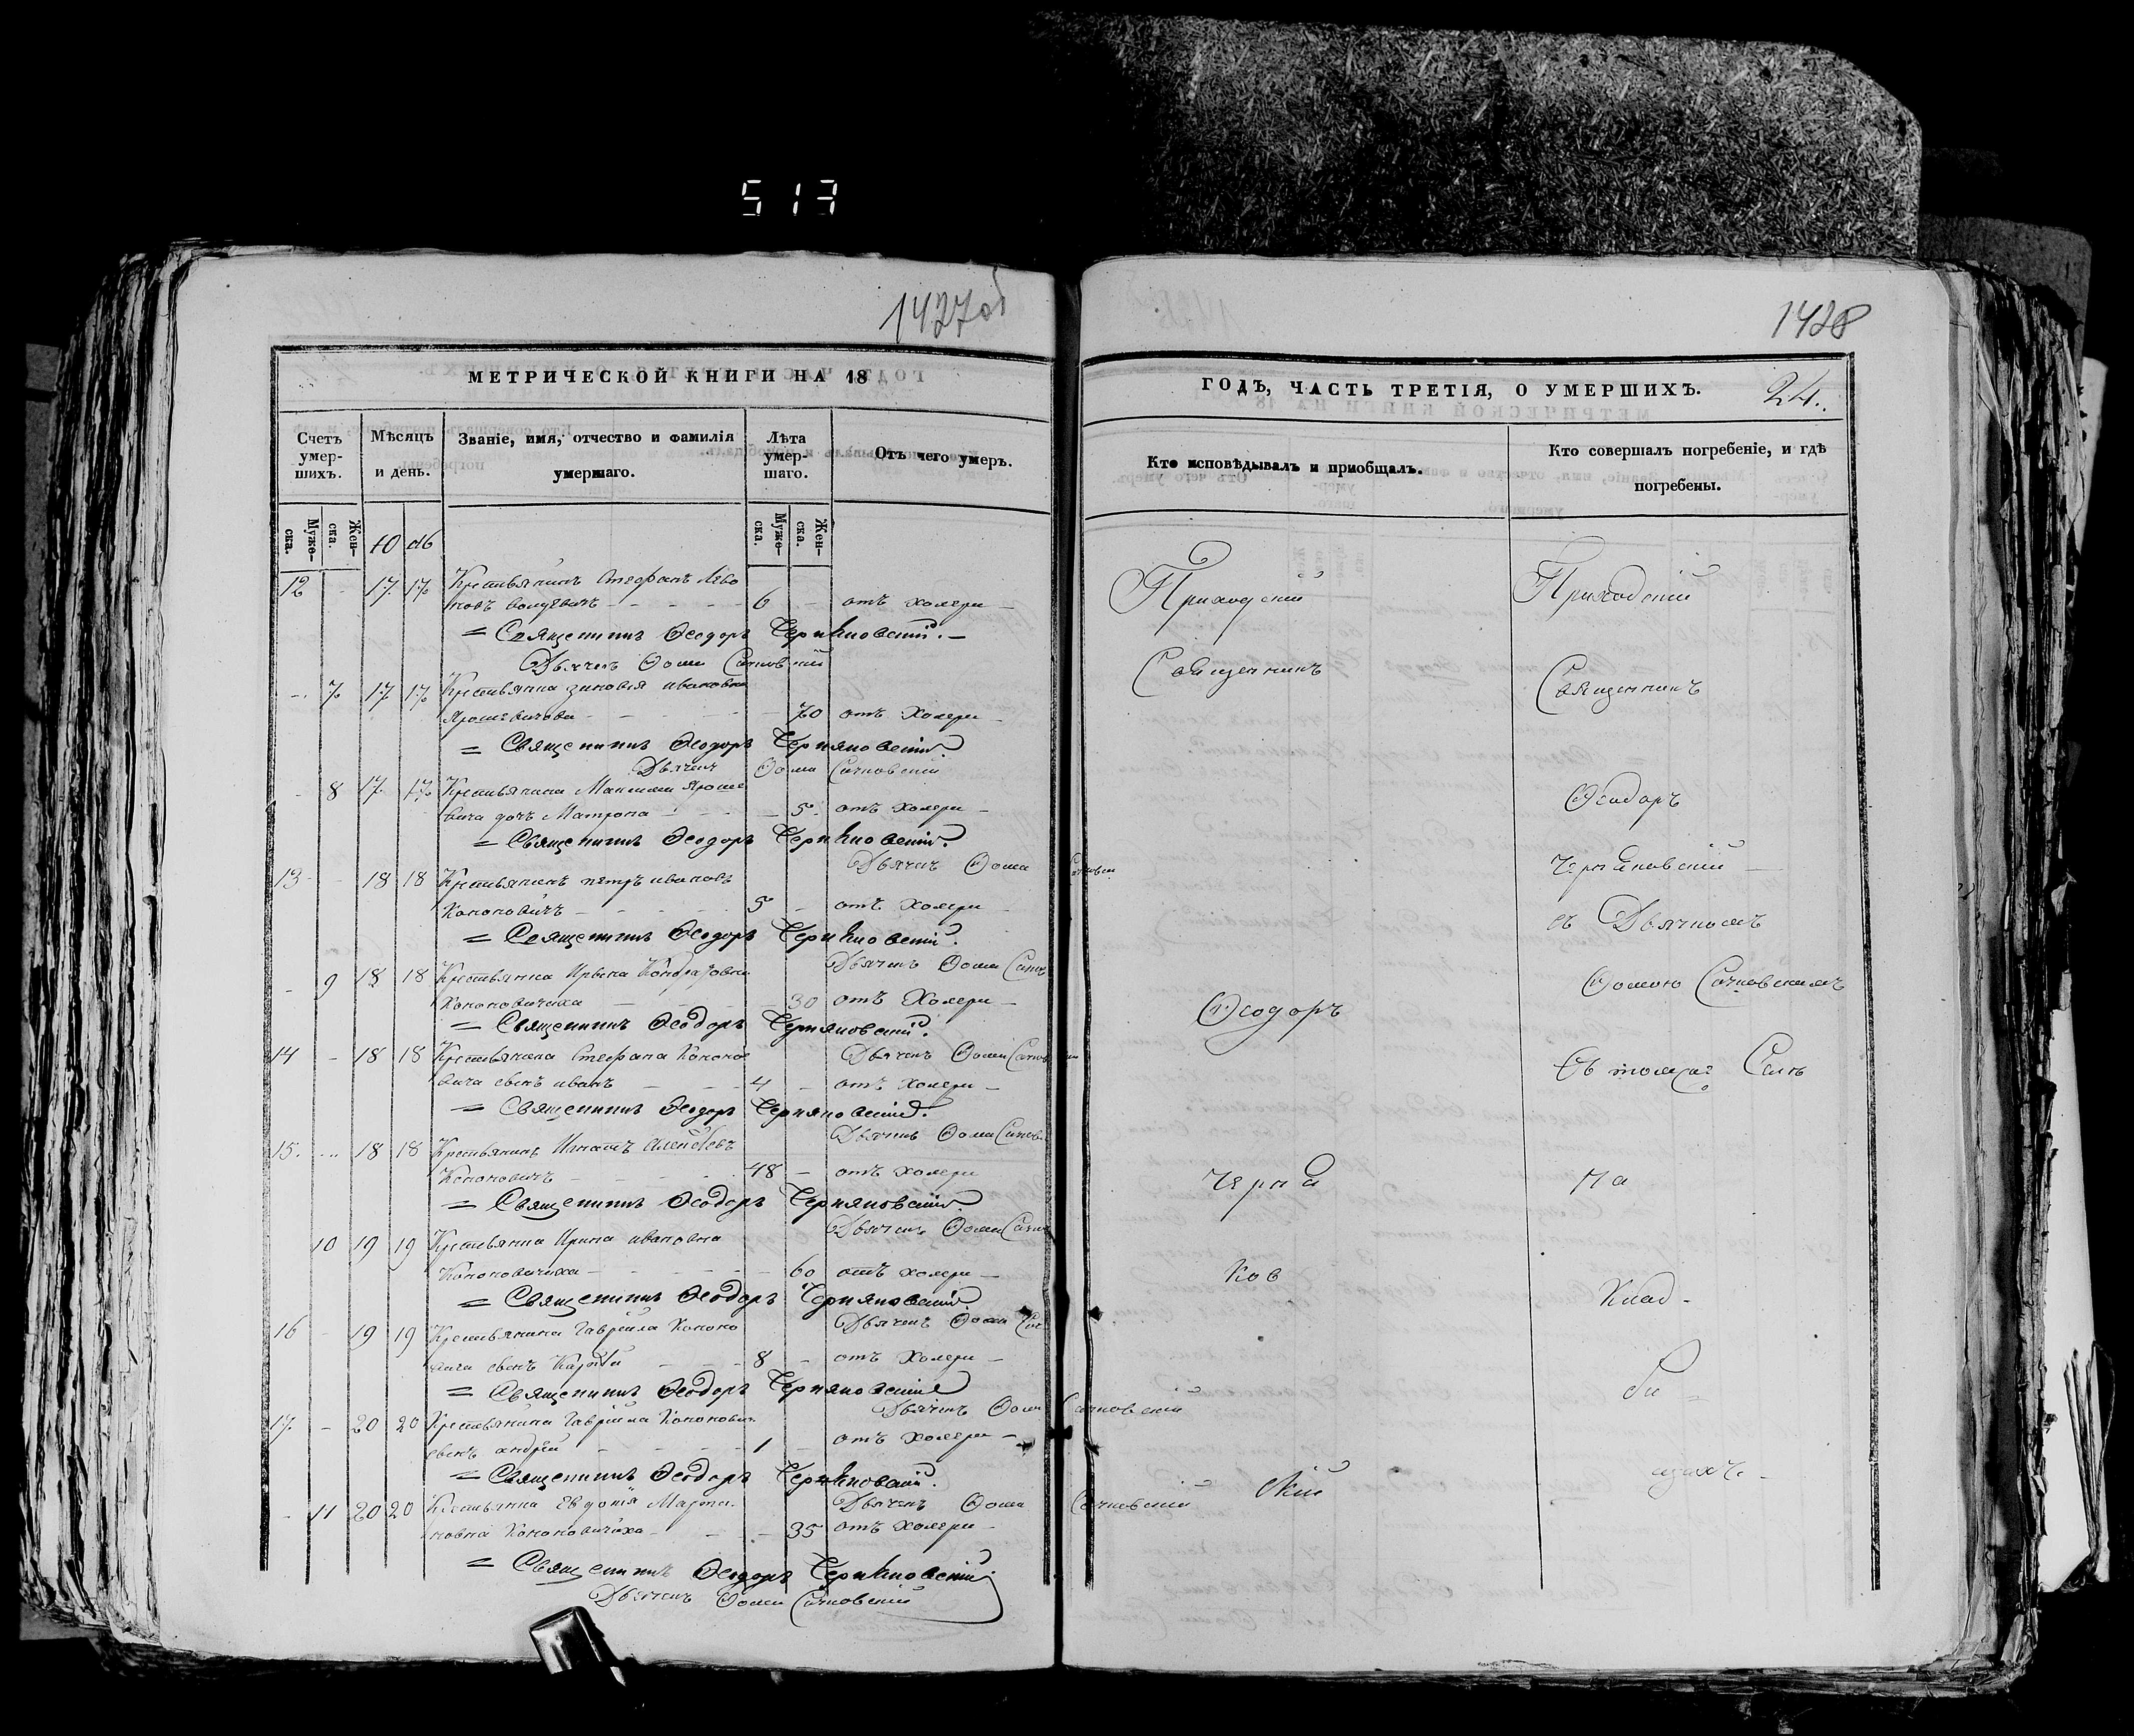 513
1427об
МЕТРИЧЕСКОЙ КНИГИ НА 18
Счетъ умер- шихъ.
Мѣсяцъ и день.
Званіе, имя, отчество и фамилія умершаго.
Лѣта умер- шаго.
Отъ чего умеръ.
Муже- ска.
Жен- ска.
Муже- ска.
Жен- ска.
12 - 17 17 Крестьянинъ Стефанъ
6 - отъ холери -
= Священникъ Ѳеодоръ Черняковскій. -
Дьячекъ Ѳома Сачковскій
- 7 17 17 Крестьянка Зиновія Ивановна
Ярошевичова - 70 отъ Холери -
= Священникъ Ѳеодоръ Черняковскій.
Дьячекъ Ѳома Сачковскій
- 8 17 17 Крестьянина Максима Яроше
вича дочъ Матрона - 5 отъ Холери -
= Священникъ Ѳеодоръ Черняковскій.
Дьячекъ Ѳома
13 - 18 18 Крестьянинъ Петръ Ивановъ
Кононовичъ - 5 - отъ Холери
= Священникъ Ѳеодоръ Черняковскій.
Дьячекъ Ѳома
- 9 18 18 Крестьянка
Кононовичиха - 30 отъ Холери -
= Священникъ Ѳеодоръ Черняковскій.
Дьячекъ Ѳома
14 - 18 18 Крестьянина Стефана Кононо
вича сынъ Иванъ - 4 - отъ Холери -
= Священникъ Ѳеодоръ Черняковскій.
Дьячекъ Ѳома
15. - 18 18 Крестьянинъ Игнатъ Алексѣевъ
Кононовичъ - 48 - отъ холери
= Священникъ Ѳеодоръ Черняковскій.
Дьячекъ Ѳома
10 19 19 Крестьянка Ирина Ивановна
Кононовичиха - 60 отъ холери -
= Священникъ Ѳеодоръ Черняковскій.
Дьячекъ Ѳома
16 - 19 19 Крестьянина Гавріила Кононо
вича сынъ - 8 - отъ Холери -
= Священникъ Ѳеодоръ Черняковскій
Дьячекъ Ѳома Сачковскій
17. - 20 20 Крестьянина Гавріила Кононович
сынъ Андрей - 1 - отъ Холери -
= Священникъ Ѳеодоръ Черняковскій.
Дьячекъ Ѳома Сачковскій
- 11 20 20 Крестьянка Евдокія Марти
новна Кононовичиха - 35 отъ Холери -
= Священникъ Ѳеодоръ Черняковскій
Дьячекъ Ѳома Сачковскій
1428
ГОДЪ, ЧАСТЬ ТРЕТІЯ, О УМЕРШИХЪ.
24.
Кто исповѣдывалъ и приобщалъ.
Кто совершалъ погребеніе, и гдѣ погребены.
Приходскій
Священникъ
Ѳеодоръ
Черня
ков
скій
Приходскій
Священникъ
Ѳеодоръ
Черняковскій
съ Дьячкомъ
Ѳомою Сачковскимъ
Селѣ
На
Клад -
би -
щахъ. -